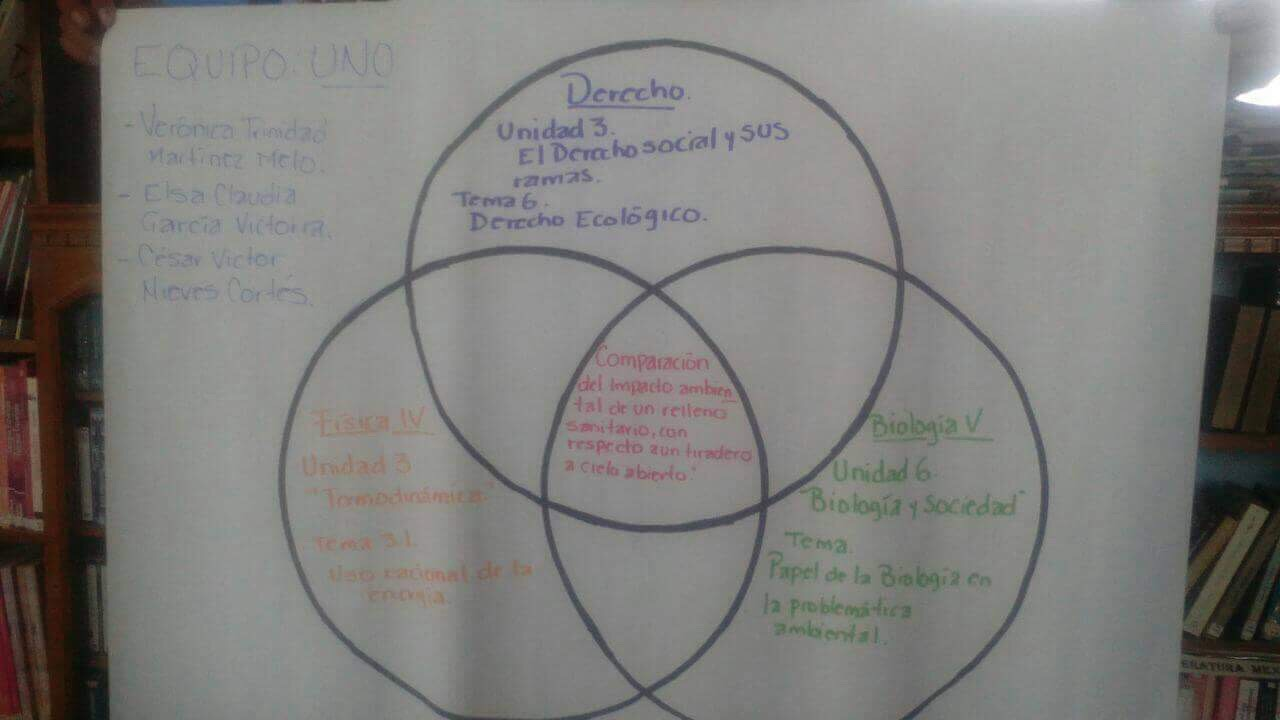 EQUIPO: UNO
- Verónica Trinidad
Martínez Melo.
- Elsa Claudia
García Victoira.
- César Victor
Nieves Cortés.
Derecho.
Unidad 3.
El Derecho social y sus
ramas.
Tema 6.
Derecho Ecológico.
Comparación
del impacto ambien
tal de un relleno
sanitario, con
respecto a un tiradero
a cielo abierto."
Física IV
Unidad 3
"Termodinámica"
Tema 3.1.
Uso racional de la
energía.
Biología V
Unidad 6.
"Biología y Sociedad"
Tema.
Papel de la Biología en
la problemática
ambiental.
ERATURA MEX